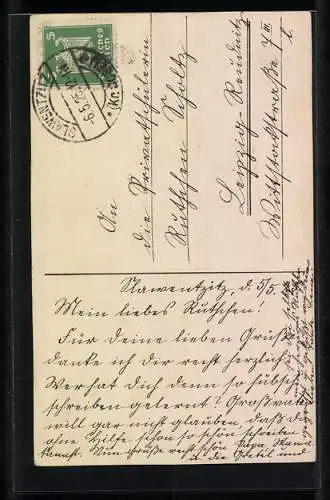 5
SLAWENTZITZ
An
die Privatschülerin
Ruthchen Scholtz
Leipzig-Reudnitz
Wittstockstraße 7 III
l.
Slawentzitz, d. 5/5.
Mein liebes Ruthchen!
Für Deine lieben Grüße
danke ich Dir recht herzlich.
Wer hat Dich denn so hübsch
schreiben gelernt? Großvater
will gar nicht glauben, daß du
ohne Hilfe schon so schön schreiben
kannst. Nun grüße recht schön Papa Mama
u. die und